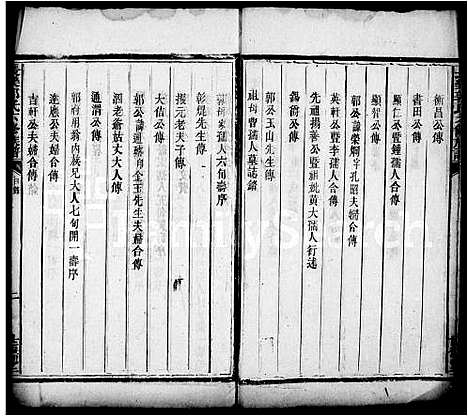 衡昌公傳
書田公傳
顯仁公暨鍾孺人合傳
顯智公傳
郭公諱榮炯字孔昭夫婦合傳
英軒公暨李孺人合傳
先祖揚菴公暨祖妣黃大孺人行述
錫濟公傳
郭公玉山先生傳
祖母曹孺人墓誌銘
孺人六旬壽序
彰焜先生傳
振元老夫子傳
大佶公傳
郭公諱通職字金玉先生夫婦合傳
泗老爺姑丈大人傳
通渭公傳
郭府用翁內叔兄大人七旬開一壽序
達廳公夫婦合傳
吉軒公夫婦合傳